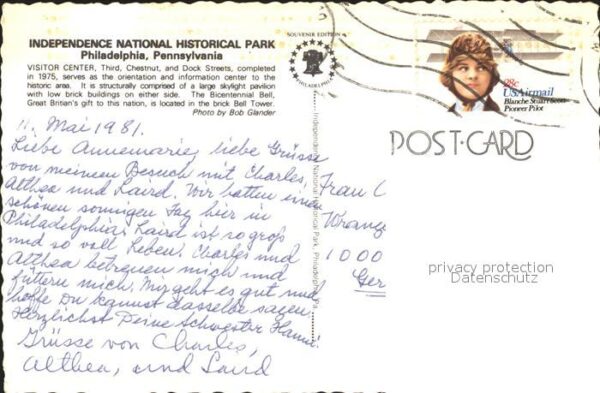 INDEPENDENCE NATIONAL HISTORICAL PARK
Philadelphia, Pennsylvania
VISITOR CENTER, Third, Chestnut, and Dock Streets, completed
in 1975, serves as the orientation and information center to the
historic area. It is structurally comprised of a large skylight pavilion
with low brick buildings on either side. The Bicentennial Bell,
Great Britian's gift to this nation, is located in the brick Bell Tower.
Photo by Bob Glander
SOUVENIR EDITION
PHILADELPHIA
28c
USAirmail
Blanche Stuart Scott
Pioneer Pilot
POST-CARD
Independence National Historical Park, Philadelphia, P
11. Mai 1981.
Liebe Annemarie, liebe Grüsse
von meinem Besuch mit Charles,
Althea und Laird. Wir hatten einen
schönen sonnigen Tag hier in
Philadelphia. Laird ist so gross
und so voll Leben. Charles und
Althea betreuen mich und
füttern mich. Mir geht es gut und
hoffe Du kannst dasselbe sagen.
Herzlichst Deine Schwester Hanni.
Grüsse von Charles,
Althea, und Laird
Frau C
Wrange
1000
Ger
privacy protection
Datenschutz